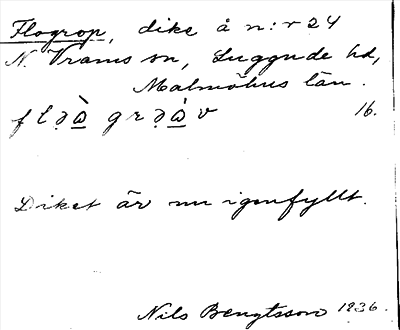 Flogrop, dike å n:r 24
N. Vrams sn, Luggude hd,
Malmöhus län.
16.
Diket är nu igenfyllt.
Nils Bengtsson 1936.